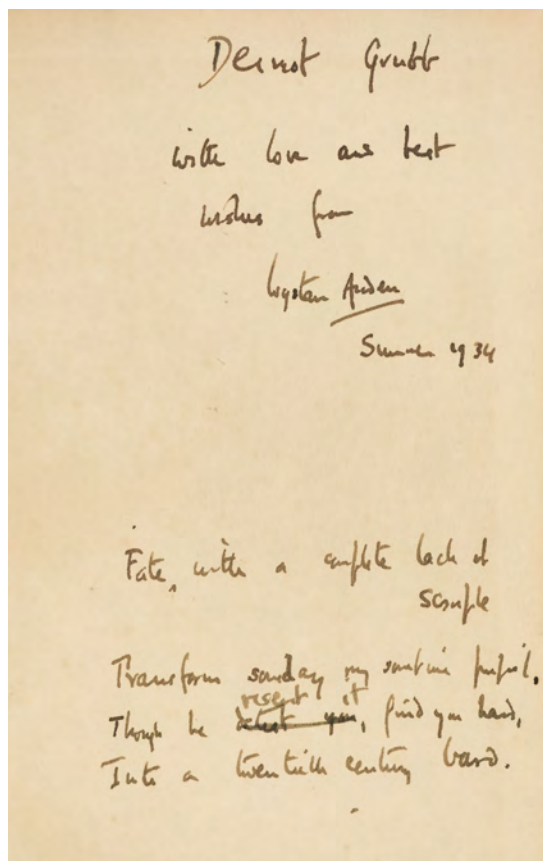 Dermot Grubb
with love and best
wishes from
Wystan Auden
Summer 1934
Fate, with a complete lack of
scruple
Transform someday my sometime pupil,
resent it
Though he detest you, find you hard,
Into a twentieth century bard.